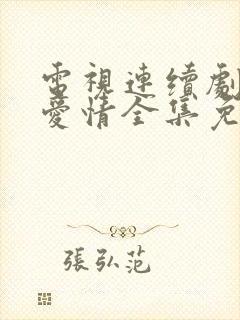 電視連續劇
愛情全集免
張弘范